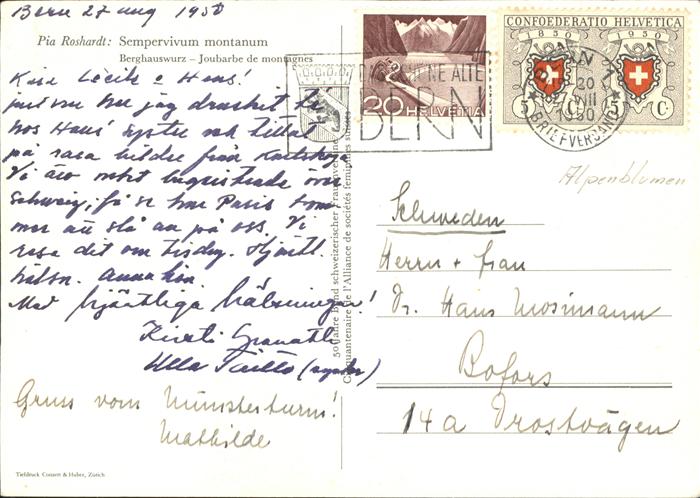 Bern 27 aug 1950
Pia Roshardt: Sempervivum montanum
Berghauswurz – Joubarbe de montagnes
Kära Cécile o Hans!
just nu har jag druckit té
hos Hans' syster och tittat
på rara bilder från Karlskoga
Vi äro mkt begeistrade över
Schweiz, få se hur Paris kom-
mer att slå an på oss. Vi
resa dit om tisdag. Hjärtl.
hälsn.
Med hjärtliga hälsningar!
Kirsti
Ulla
Gruss vom Münsterturm!
Mathilde
Tiefdruck Conzett & Huber, Zürich
50 Jahre Bund schweizerischer Frauenvereine
Cinquantenaire de l'Alliance de sociétés féminines suisses
DAS SCHÖNE ALTE
BERN
20 HELVETIA
CONFOEDERATIO HELVETICA
1850 1950
5 C 5 C
BERN 1
20
27 VIII
1950
BRIEFVERSAND
Alpenblumen
Schweden
Herrn + Frau
Dr. Hans Mosimann
Bofors
14a Trostvägen